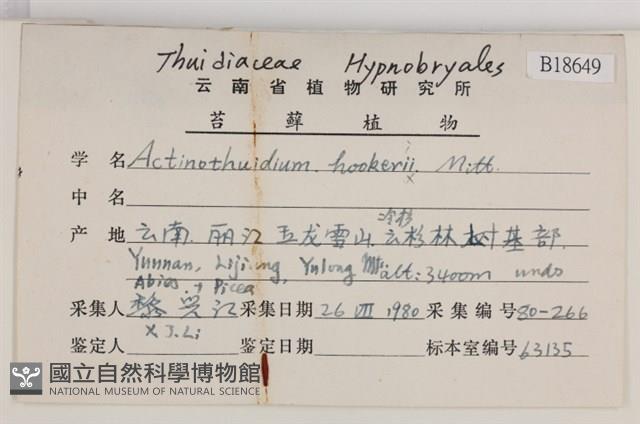 Thuidiaceae Hypnobryales
B18649
云南省植物研究所
苔藓植物
学名 Actinothuidium hookerii. Mitt.
中名
冷杉
产地 云南. 丽江 玉龙雪山. 云杉林树基部.
Yunnan, Lijiang, Yulong Mt. alt: 3400m undo
Abies + Picea
采集人 黎兴江 采集日期 26 VIII 1980 采集编号 80-266
X J. Li
鉴定人 鉴定日期 标本室编号 63135
國立自然科學博物館
NATIONAL MUSEUM OF NATURAL SCIENCE